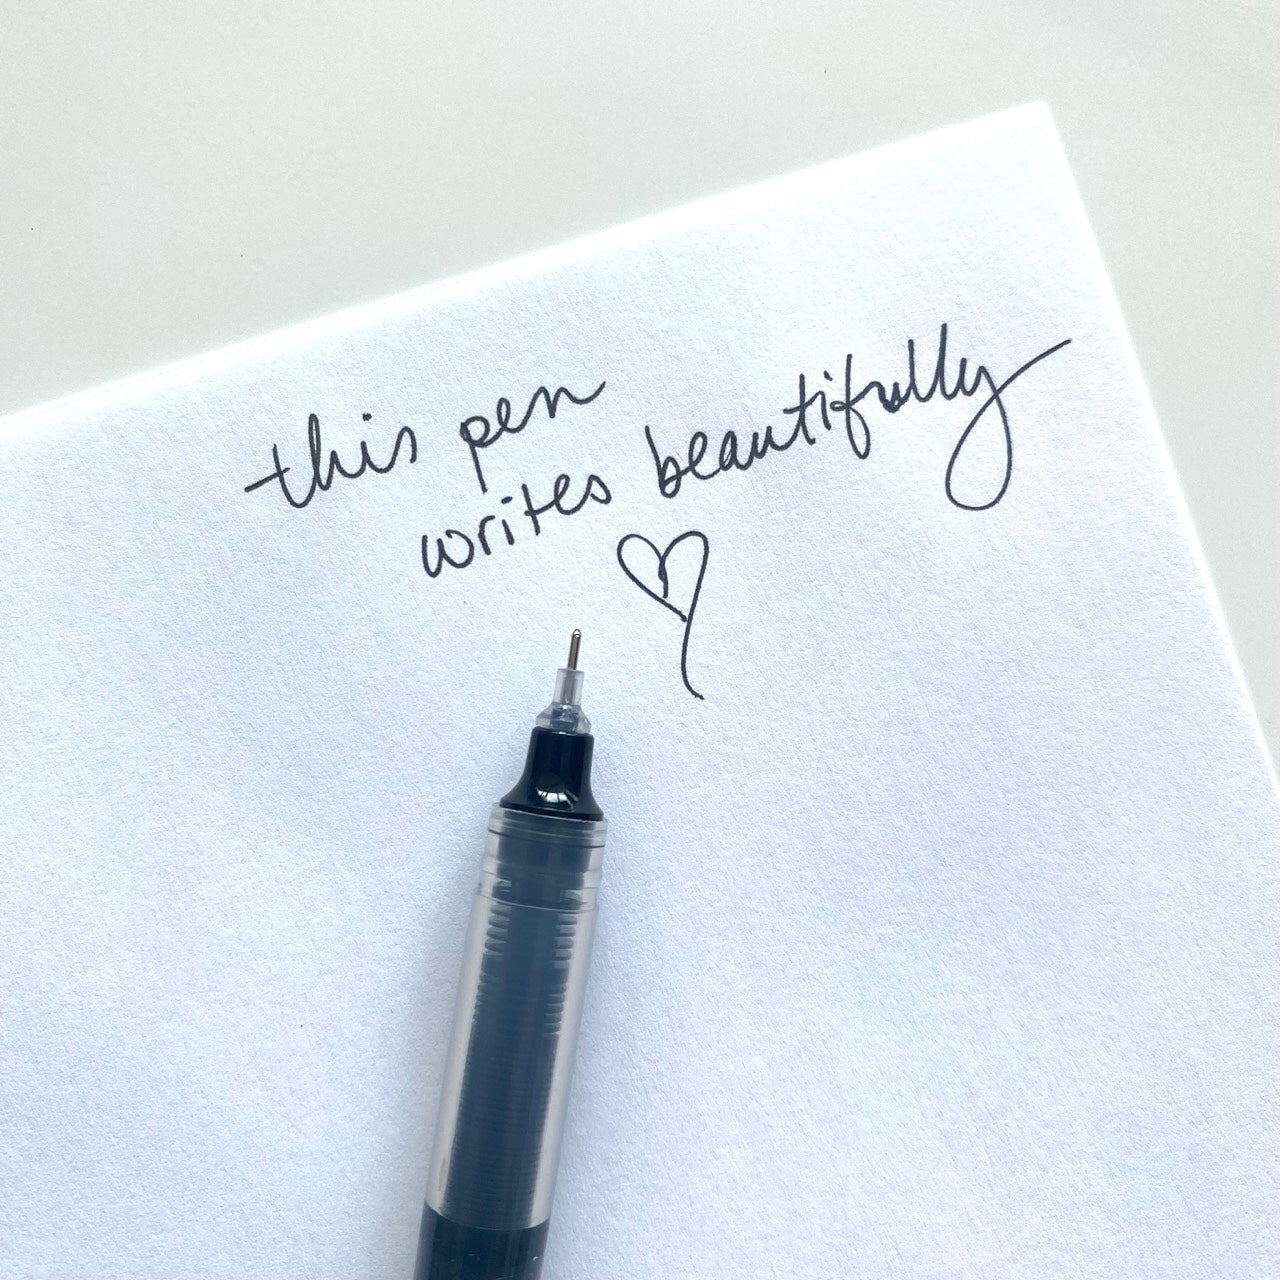 this pen
writes beautifully